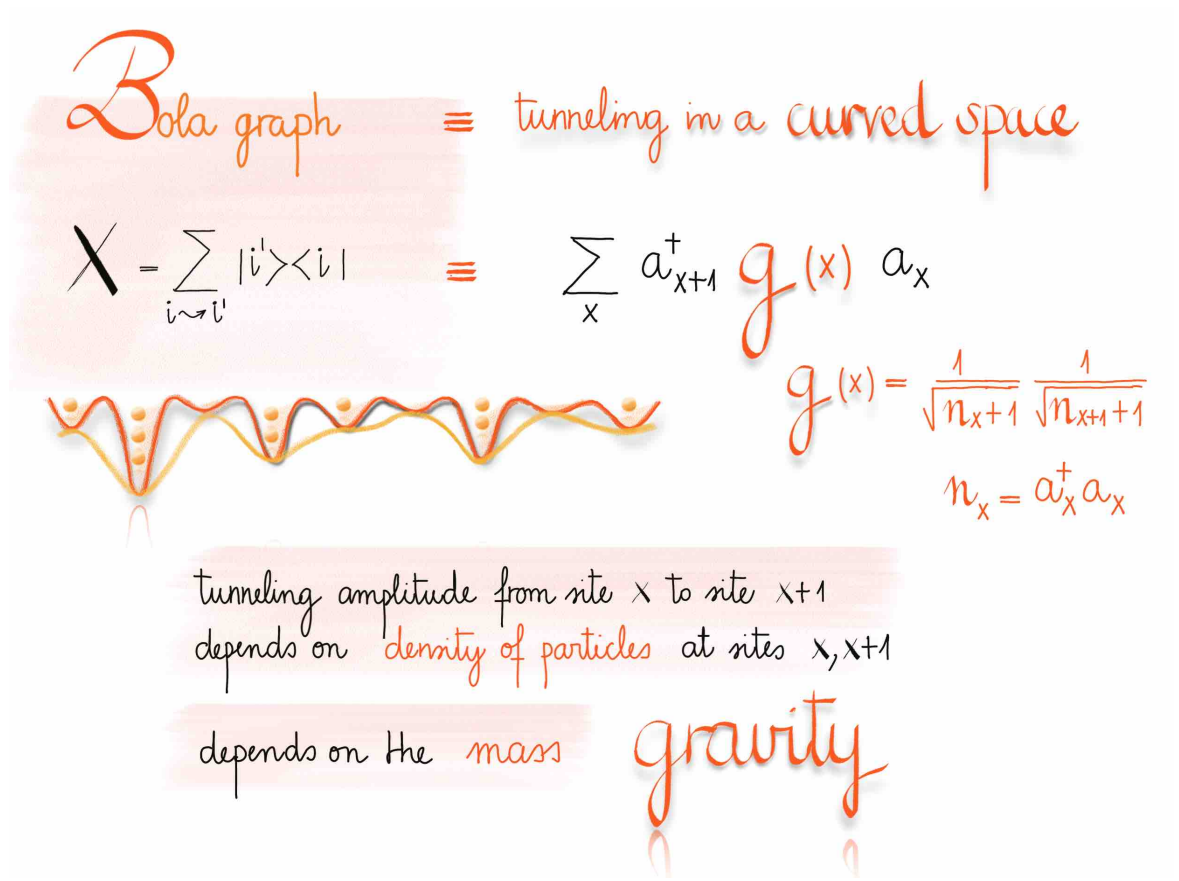 Bola graph ≡ tunneling in a curved space
X = ∑ |i'><i| ≡ ∑ a†x+1 g(x) ax
i⤳i' x
g(x) = 1/√(nx+1) 1/√(nx+1+1)
nx = a†x ax
tunneling amplitude from site x to site x+1
depends on density of particles at sites x, x+1
depends on the mass gravity